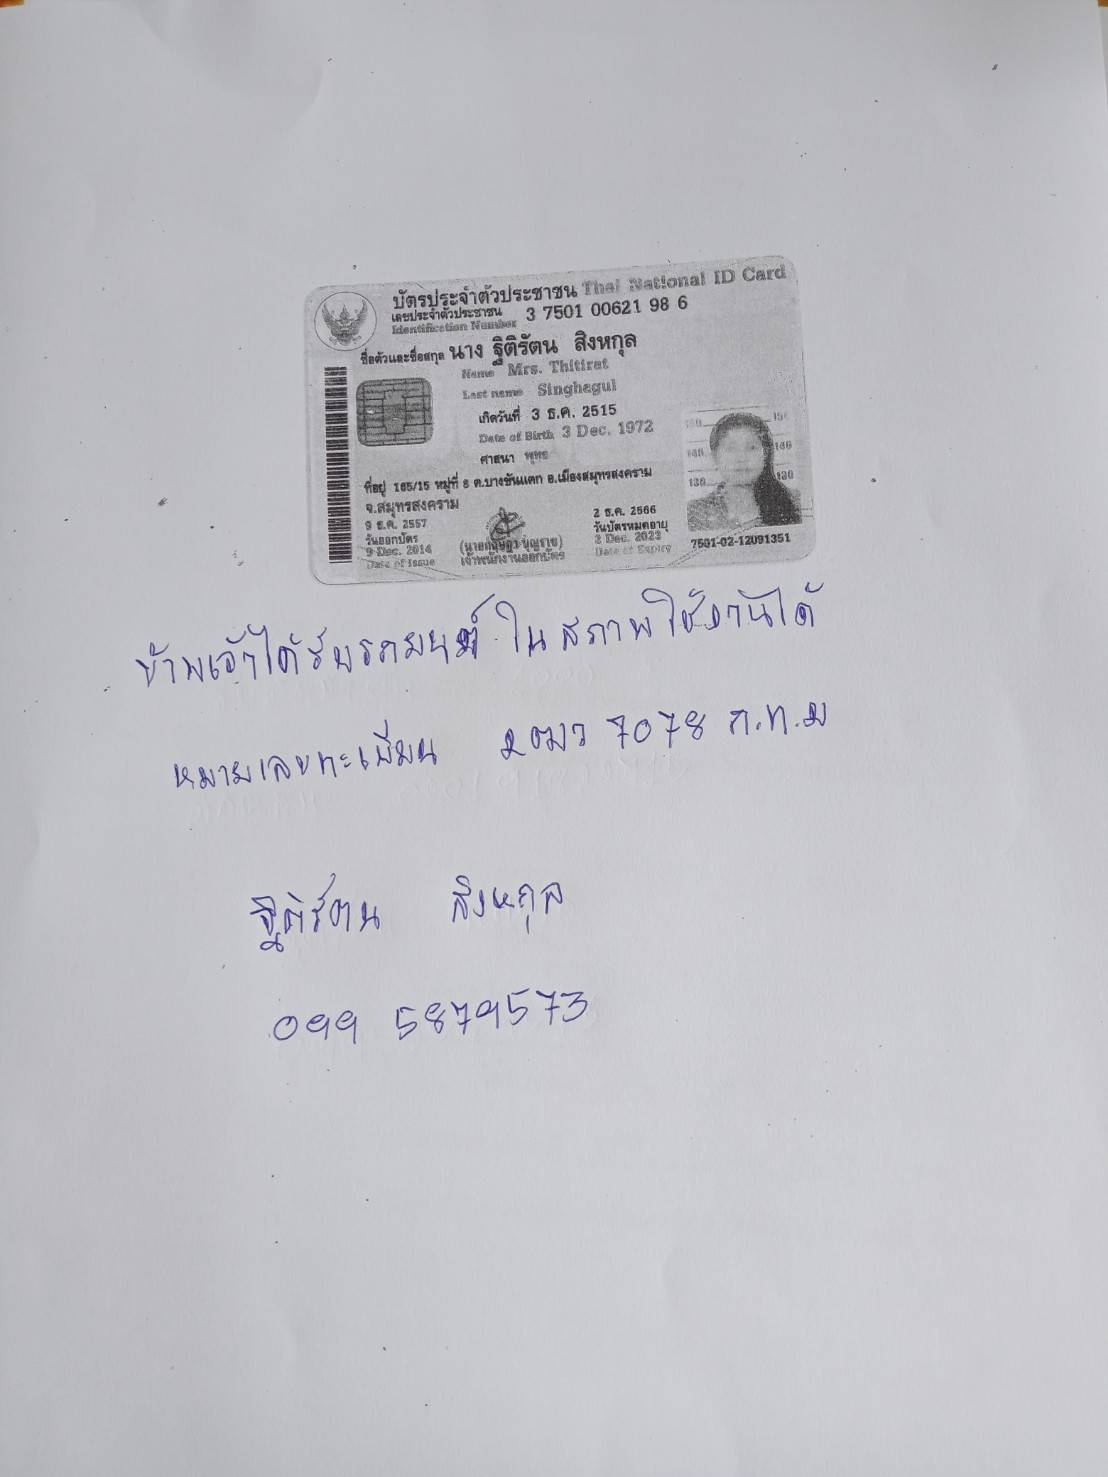 บัตรประจำตัวประชาชน Thai National ID Card
เลขประจำตัวประชาชน 3 7501 00621 98 6
Identification Number
ชื่อตัวและชื่อสกุล นาง ฐิติรัตน สิงหกุล
Name Mrs. Thitirat
Last name Singhagul
เกิดวันที่ 3 ธ.ค. 2515
Date of Birth 3 Dec. 1972
ศาสนา พุทธ
ที่อยู่ 165/15 หมู่ที่ 8 ต.บางขันแตก อ.เมืองสมุทรสงคราม
จ.สมุทรสงคราม
9 ธ.ค. 2557
วันออกบัตร
9 Dec. 2014
Date of Issue
เจ้าพนักงานออกบัตร
2 ธ.ค. 2566
วันบัตรหมดอายุ
2 Dec. 2023
Date of Expiry
7501-02-12091351
ข้าพเจ้าได้รับรถยนต์ ในสภาพใช้งานได้
หมายเลขทะเบียน 2ฒว 7078 ก.ท.ม
ฐิติรัตน สิงหกุล
099 5879573